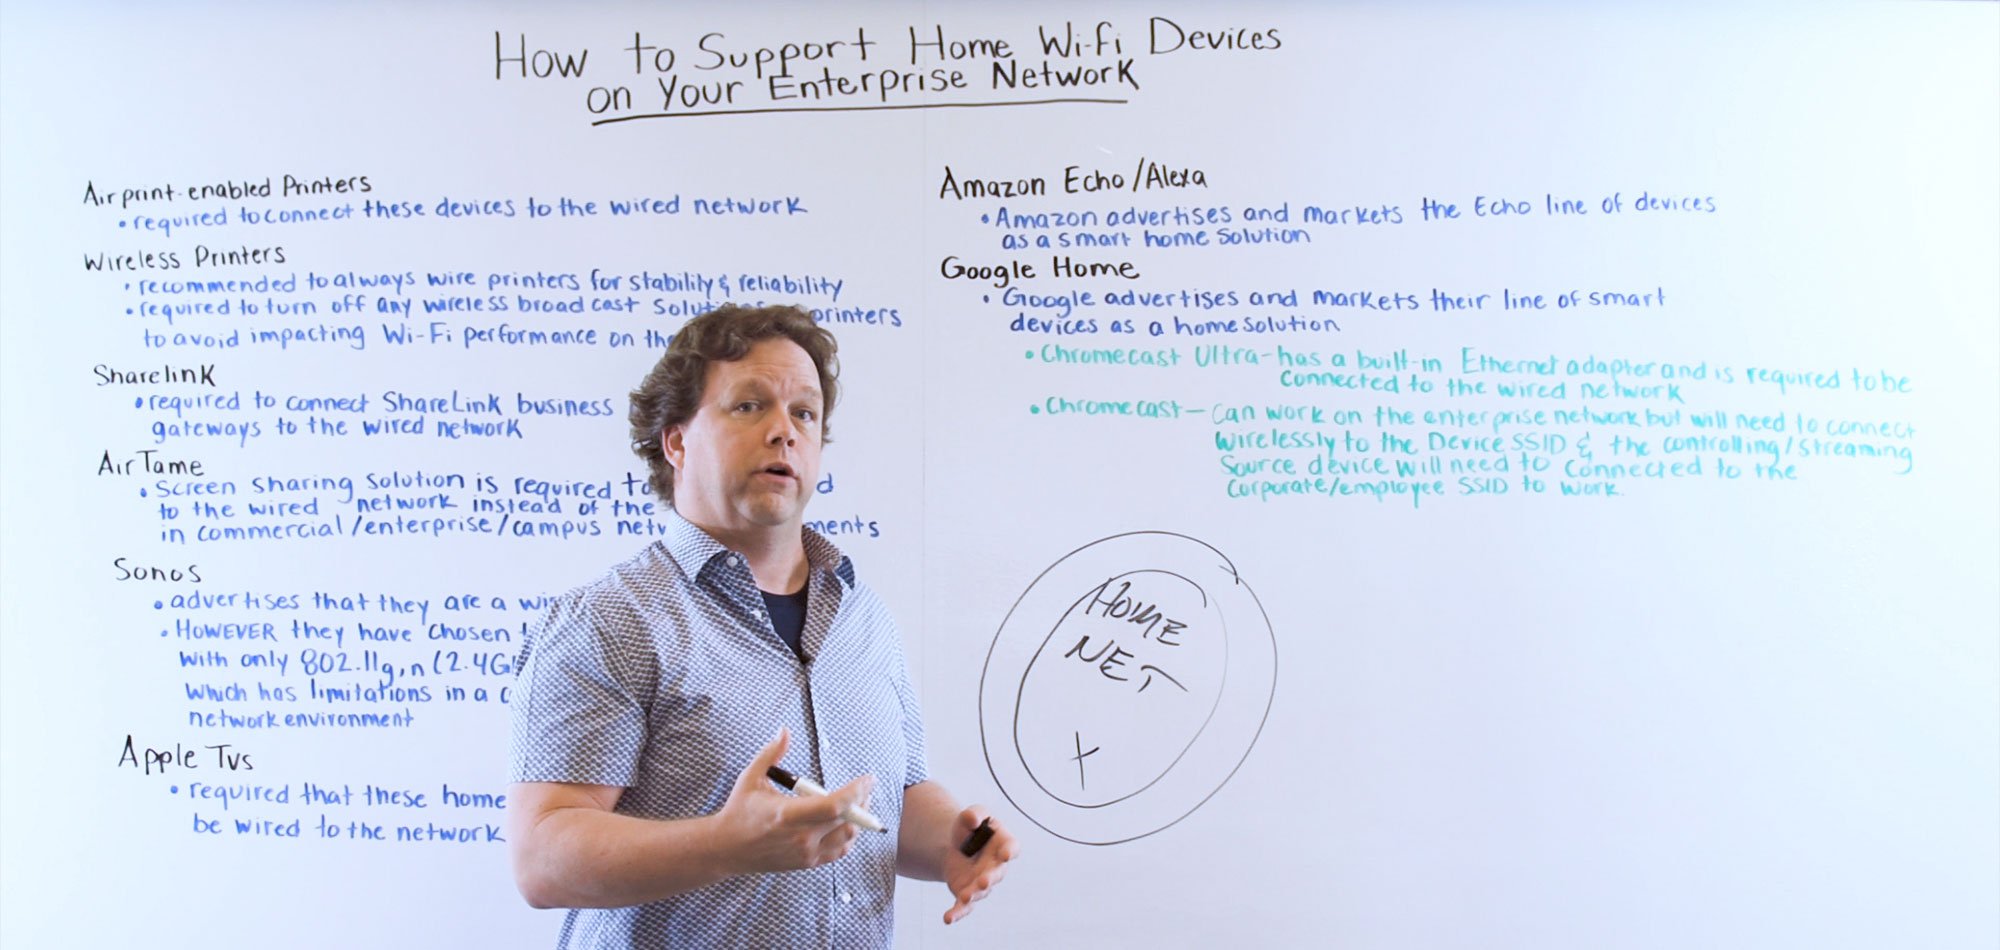 How to Support Home Wi-Fi Devices
on Your Enterprise Network
Airprint-enabled Printers
• required to connect these devices to the wired network
Wireless Printers
• recommended to always wire printers for stability & reliability
• required to turn off any wireless broadcast printers
to avoid impacting Wi-Fi performance on
Sharelink
• required to connect ShareLink business
gateways to the wired network
AirTame
• Screen sharing solution is required
to the wired network instead of the
in commercial/enterprise/campus
Sonos
• advertises that they are a
• HOWEVER they have chosen
with only 802.11g,n (2.4G
which has limitations in a
network environment
Apple TVs
• required that these home
be wired to the network
Amazon Echo/Alexa
• Amazon advertises and markets the Echo line of devices
as a smart home solution
Google Home
• Google advertises and markets their line of smart
devices as a home solution
• Chromecast Ultra-has a built-in Ethernet adapter and is required to be
connected to the wired network
• Chromecast— can work on the enterprise network but will need to connect
wirelessly to the Device SSID & the controlling/streaming
Source device will need to connected to the
corporate/employee SSID to work.
HOME
NET